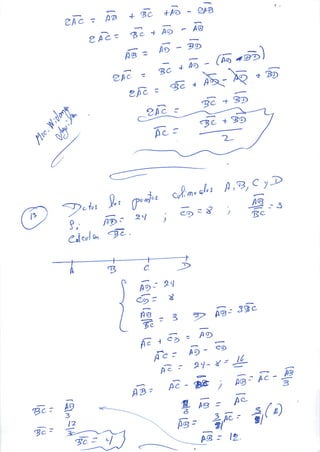 2AC = AD + BC + AD - 2AB
2AC = BC + AD - AB
AB = AD - BD
2AC = BC + AD - (AD - BD)
2AC = BC + AD - AD + BD
2AC = BC + BD
AC = BC + BD / 2
13 Dados los puntos colineales A, B, C y D
Si AD = 24 ; CD = 8 ; AB/BC = 3
Calcular BC.
A B C D
AD = 24
CD = 8
AB/BC = 3 ⇒ AB = 3BC
AC + CD = AD
AC = AD - CD
AC = 24 - 8 = 16
AB = AC - BC ; AB = AC - AB/3
AB = AC
BC = AB/3
AB = 3/4 AC =
BC = 12/3
AB = 12
BC = 4